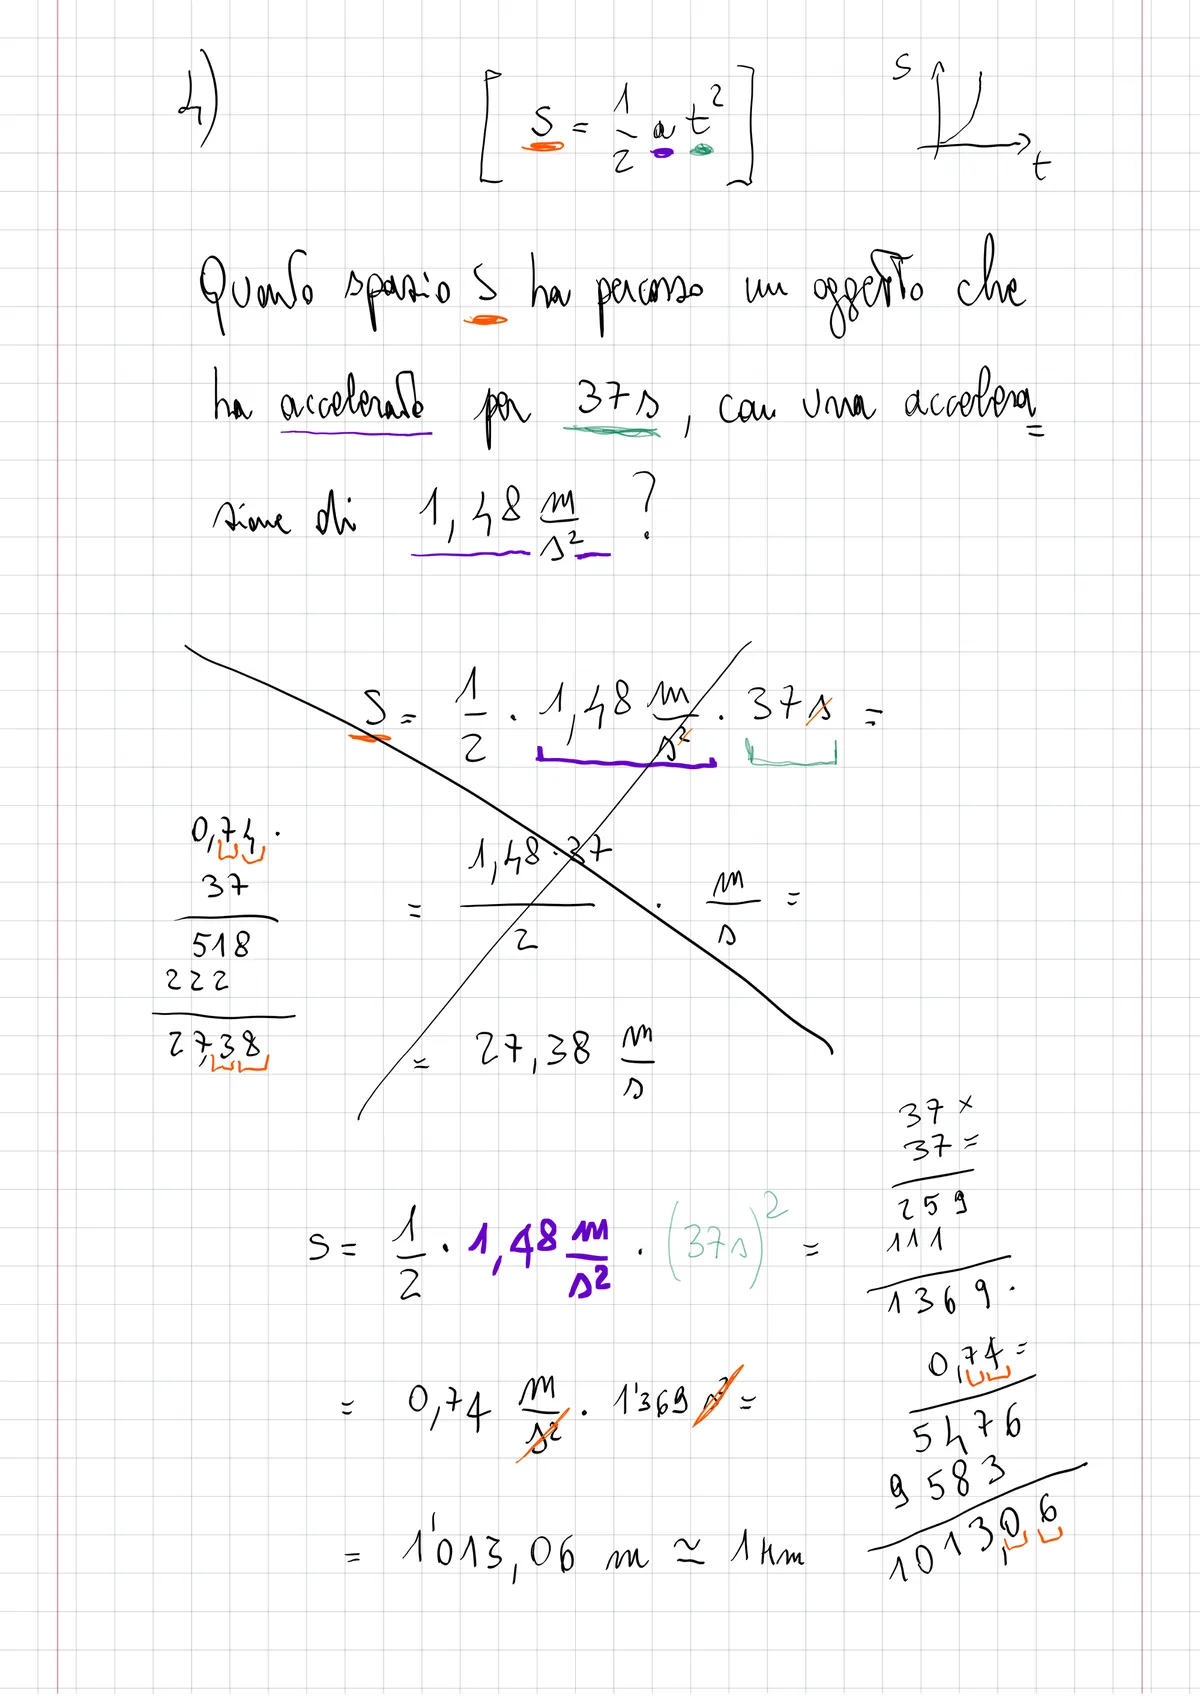 4)
[ S = 1/2 a t² ]
S
t
Quanto spazio S ha percorso un oggetto che
ha accelerato per 37s, con una accelera=
zione di 1,48 m/s² ?
S = 1/2 · 1,48 m/s² · 37s =
= 1,48·37/2 · m/s =
= 27,38 m/s
0,74 ·
37
518
222
27,38
S = 1/2 · 1,48 m/s² · (37s)² =
= 0,74 m/s² · 1'369 s² =
= 1'013,06 m ≃ 1 km
37 ×
37 =
259
111
1369 ·
0,74 =
5476
9583
1013,06